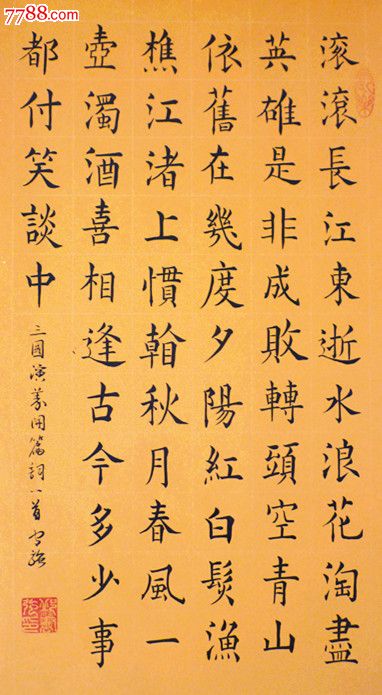 7788.com
滚滾長江東逝水浪花淘盡
英雄是非成敗轉頭空青山
依舊在幾度夕陽紅白髮漁
樵江渚上慣看秋月春風一
壺濁酒喜相逢古今多少事
都付笑談中
三國演義開篇詞一首